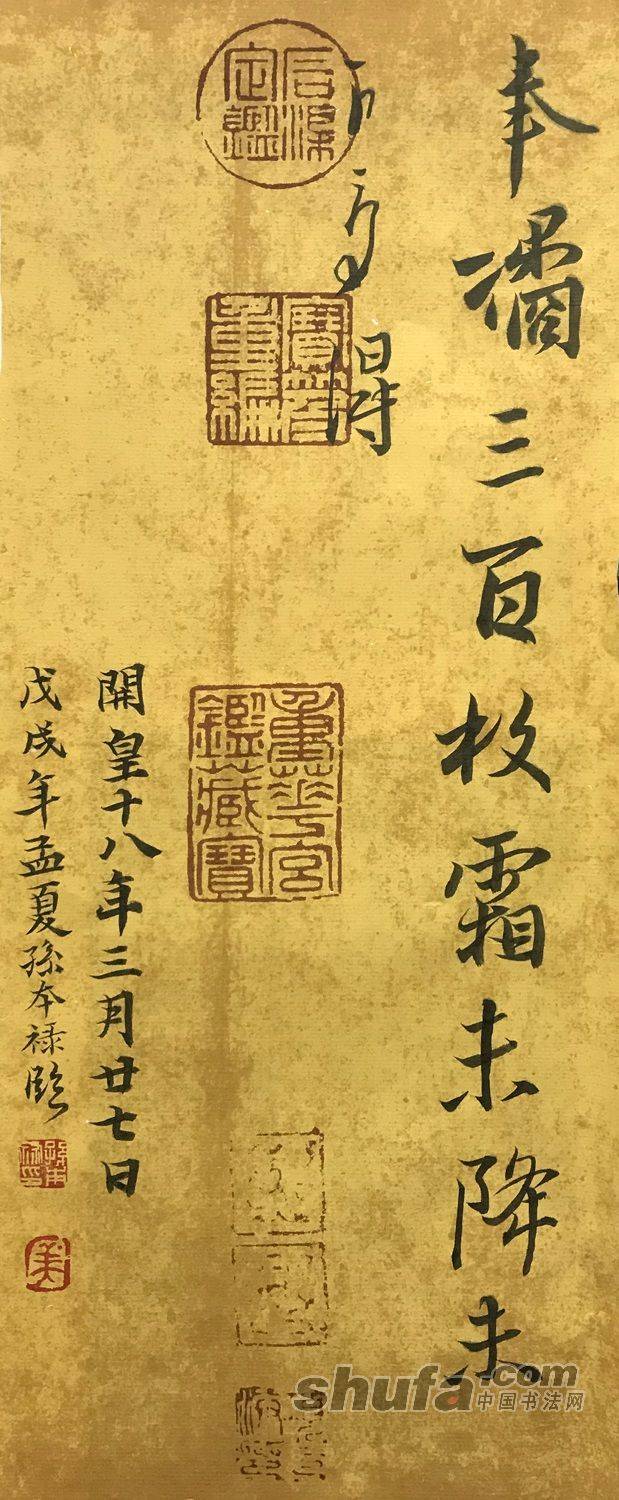 奉橘三百枚霜未降未
可多得
石渠定鑑
寶笈重編
重華宮鑑藏寶
開皇十八年三月廿七日
戊戌年孟夏孫本禄臨
shufa.com
中国书法网